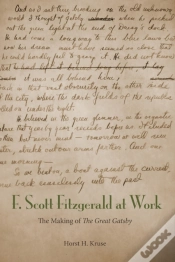 And as I sat there brooding on the old unknowing
world I thought of Gatsby when he picked
out the green light at the end of Daisy's dock.
He had come a long way to this blue lawn but
his dream must have seemed so close that
he could hardly fail to grasp it. He did not know
that he had left it before, it lay
it was all behind him,
back in that vast obscurity on the other side
of the city, where the dark fields of the republic
rolled on under the night.
He believed in the green glimmer, in the orgiastic
future that year by year recedes before us. It eluded
us then but never mind — tomorrow we will run
faster, stretch out our arms farther. And one
morning —
So we beat on, a boat against the current,
borne back ceaselessly into the past
F. Scott Fitzgerald at Work
The Making of The Great Gatsby
Horst H. Kruse
WOOK